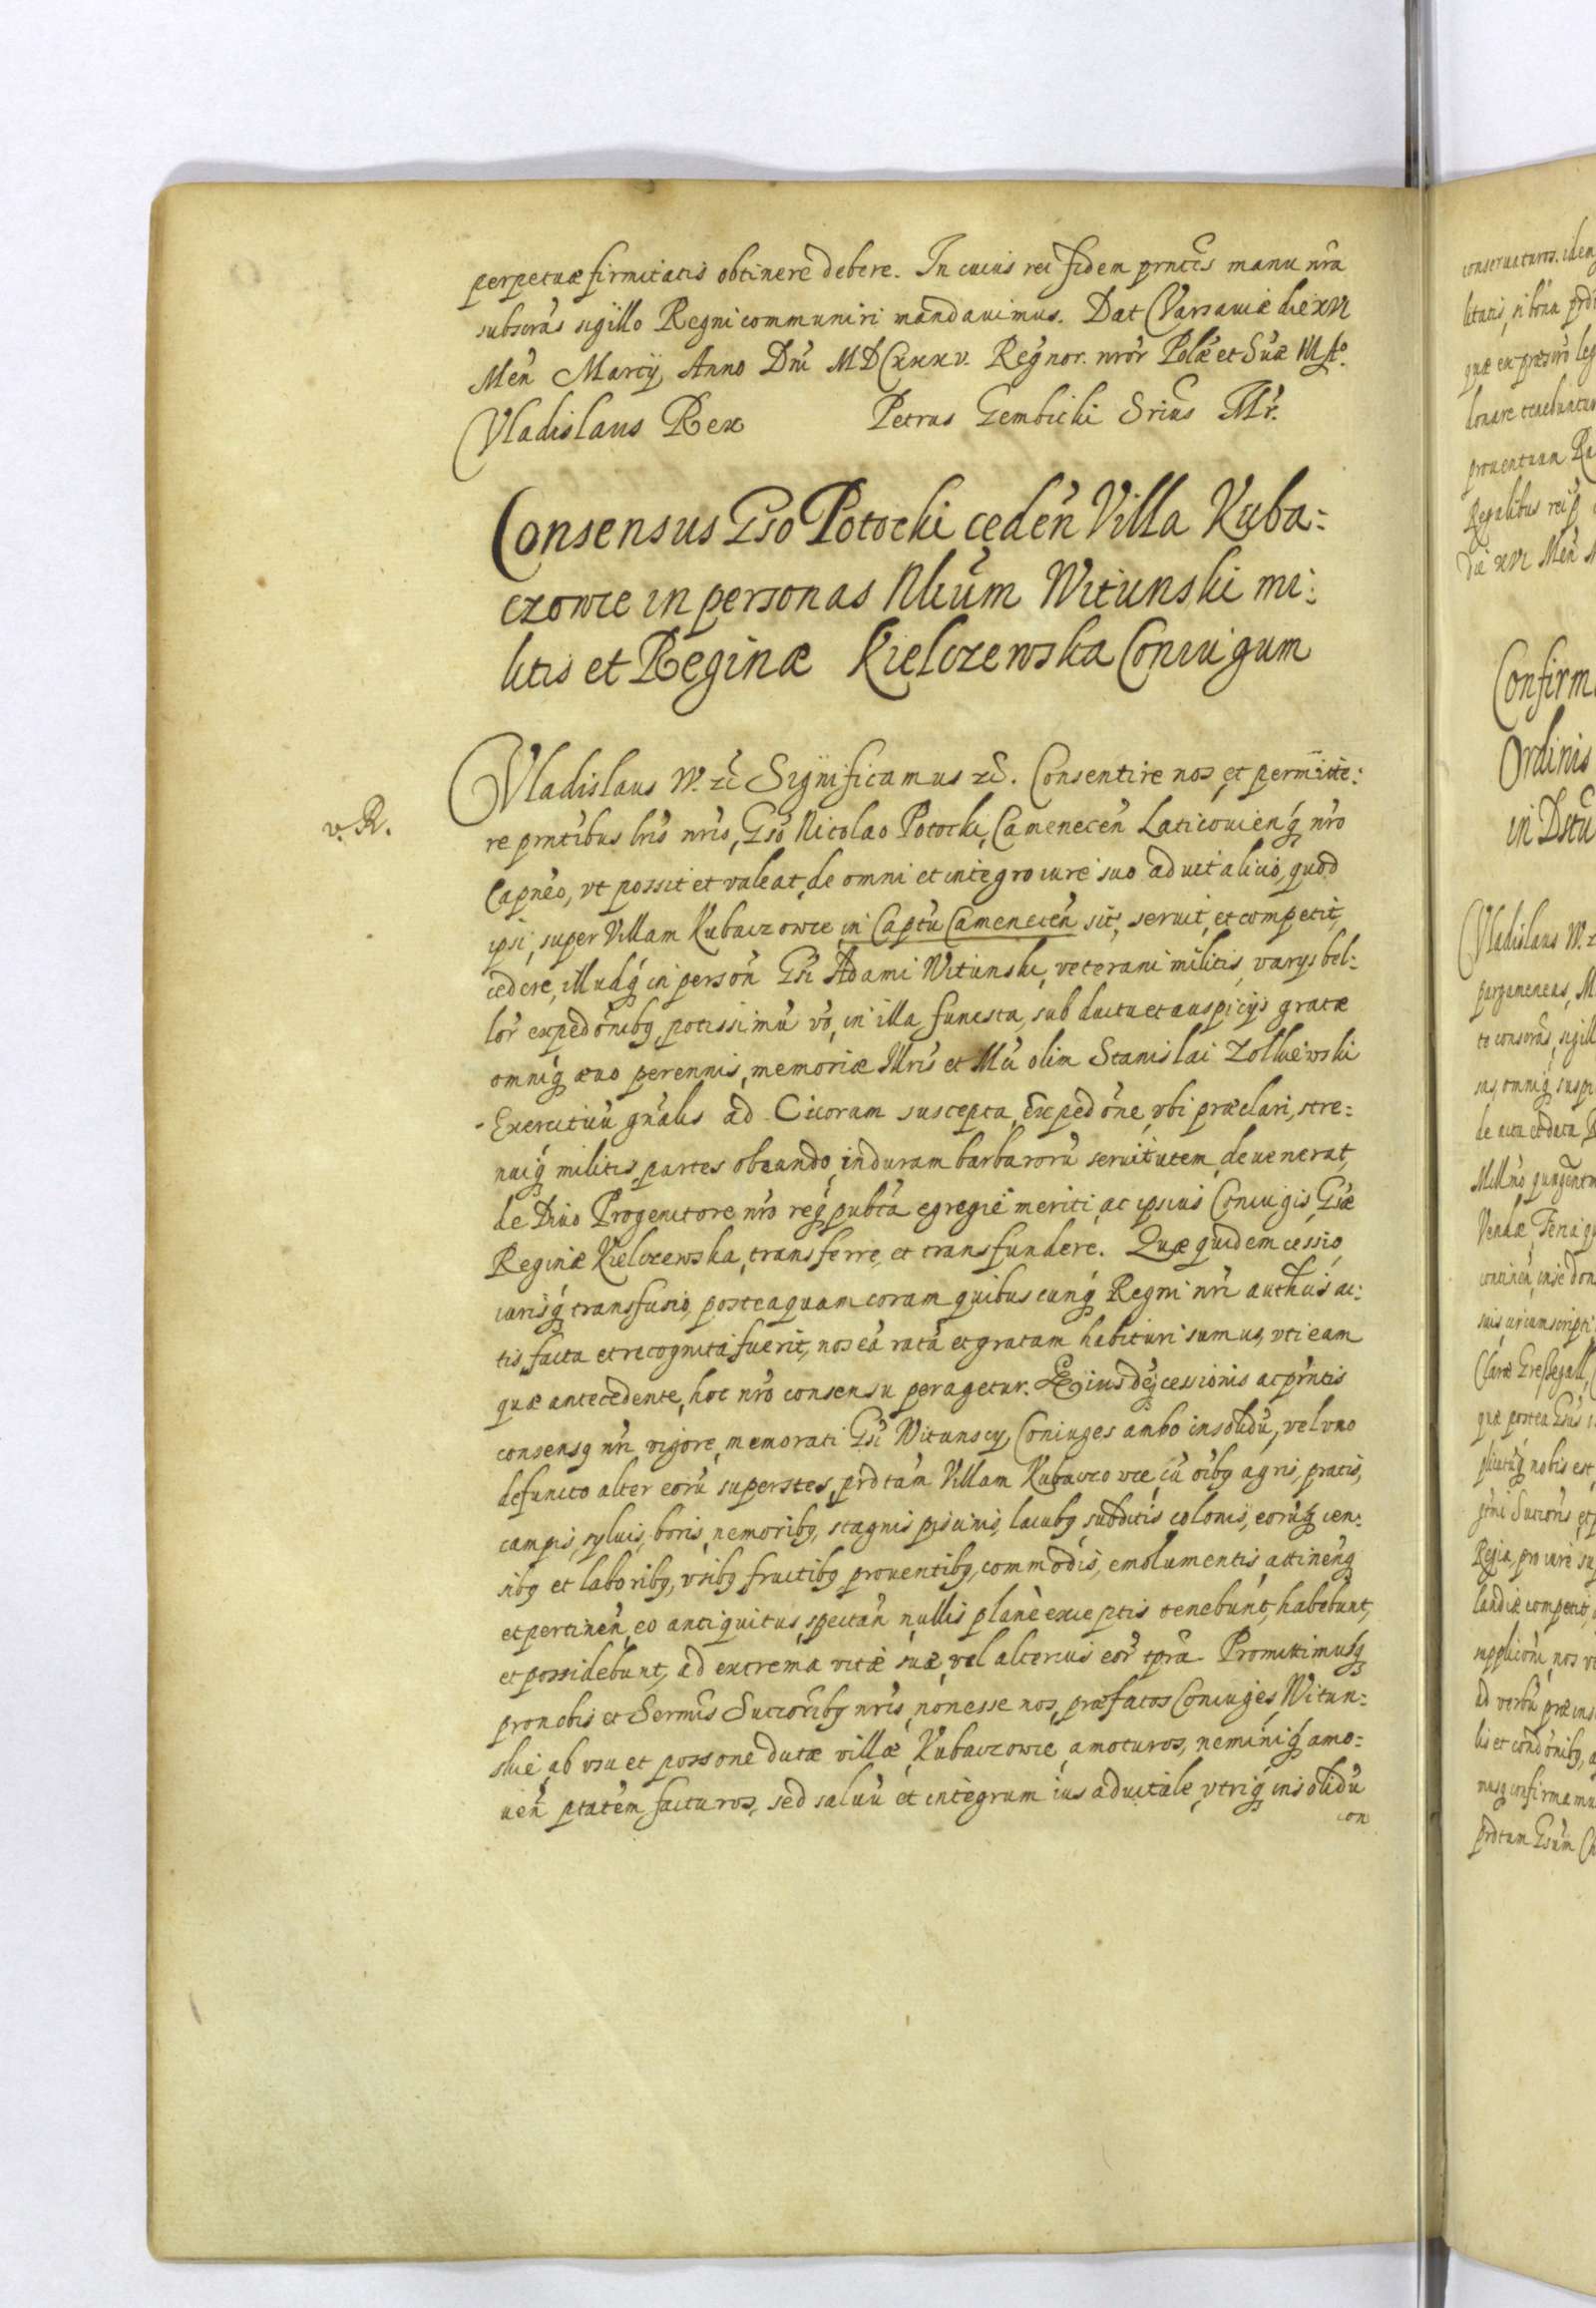 perpetuæ firmitatis obtinere debere. In cuius rei fidem prntẽs manu nr̃a
subscrãs sigillo Regni communiri mandauimus. Dat Varsauiæ die XVI
Meñ Martÿ Anno Dñi MDCXXXV. Regnor. nror̃ Polæ et Suæ III Aº.
Vladislaus Rex Petrus Gembicki Srius Mr̃.
Consensus Gso Potocki cedeñ Villa Kuba:
czowce in personas Nlium Witunski mi:
litis et Reginæ Kielczewska Coniugum
Vladislaus IV. zc̃ Significamus zc̃. Consentire nos, et permitte:
v. R.
re prntibus lr̃is nr̃is, Gsõ Nicolao Potocki, Camenecen̄ Laticouienq́ nr̃o
Capneo, vt possit et valeat, de omni et integro iure suo aduitalicio, quod
ipsi, super Villam Kubaczowce in Captu Camenecen̄ sit̃, seruit, et competit,
cedere, illudq́ in persoñ Gsi Adami Witunski, veterani militis, varÿs bel:
lor̃ expedõnibg, potissimũ vo, in illa funesta, sub ductu et auspicÿs gratæ
omniq́ æuo perennis, memoriæ Illris et Mci olim Stanislai Zolkiewski
Exercituũ gnalis ad Cicoram suscepta, Expedõne, vbi præclari, stre:
nuiq́ militis, partes obeundo, in duram barbarorũ seruitutem, deuenerat,
de Diuo Progenitore nr̃o req́ pubta egregie meriti, ac ipsius Coniugis Gsæ
Reginæ Kielczewska, transferre, et transfundere. Quæ quidem cessio,
iurisq́ transfusio, posteaquam coram quibuscunq́ Regni nr̃i authcis ac:
tis facta et recognita fuerit, nos eã ratã et gratam habituri sumus, vti eam
quæ antecedente, hoc nr̃o consensu peragetur. Eiusdeq́ cessionis ac prntis
consensg nr̃i vigore, memorati Gsi Witunscy, Coniuges ambo insolidũ, vel vno
defuncto alter eorũ superstes, prdtam Villam Kubaczowce, cũ oibg agris, pratis,
campis, syluis, boris, nemoribg, stagnis, piscinis, lacubg, subditis colonis, eorũq́ cen:
sibg et laboribg, vsibg fructibg prouentibg, commodis, emolumentis, attinenq́
et pertineñ, eo antiquitus, spectañ nullis planè exceptis tenebunt, habebunt,
et possidebunt, ad extrema vitæ suæ, vel alterius eor̃ tpra. Promittimusq́
pro nobis et Sermis Succoribg nr̃is, non esse nos, præfatos Coniuges, Witun:
skie, ab vsu et possone dictæ villæ, Kubaczowce, amoturos, neminiq́ amo:
uen̄ ptatem facturos, sed saluũ et integrum ius aduitale, vtriq́ insolidũ
con